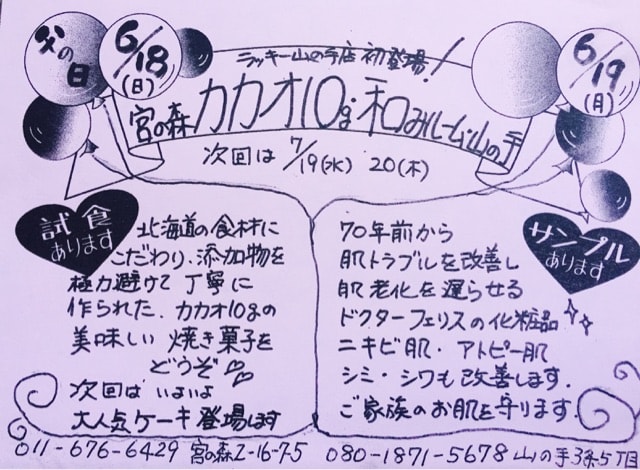 父の日
6/18(日)
ラッキー山の手店初登場!
6/19(月)
宮の森カカオ10g・和みルーム山の手
次回は 7/19(水) 20(木)
試食あります
北海道の食材に
こだわり、添加物を
極力避けて丁寧に
作られた、カカオ10gの
美味しい焼き菓子を
どうぞ♡♡
次回は いよいよ
大人気ケーキ登場します
011-676-6429 宮の森2-16-7-5
サンプルあります
70年前から
肌トラブルを改善し
肌老化を遅らせる
ドクターフェリスの化粧品
ニキビ肌・アトピー肌
シミ・シワも改善します.
ご家族のお肌を守ります.
080-1871-5678 山の手3条5丁目